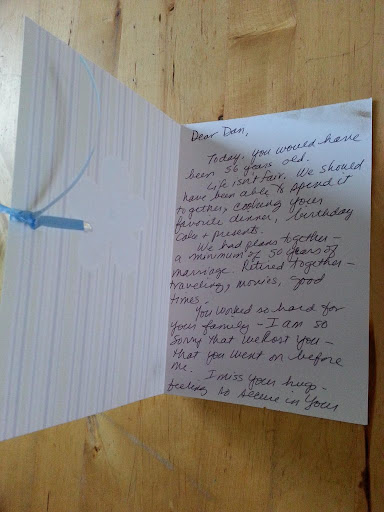 Dear Dan,
Today, you would have
been 56 years old.
Life isn't fair. We should
have been able to spend it
together, cooking your
favorite dinner, birthday
cake + presents.
We had plans together -
a minimum of 50 years of
marriage. Retired together -
traveling, movies, good
times.
You worked so hard for
your family - I am so
sorry that we lost you -
that you went on before
me.
I miss your hugs -
feeling so secure in your